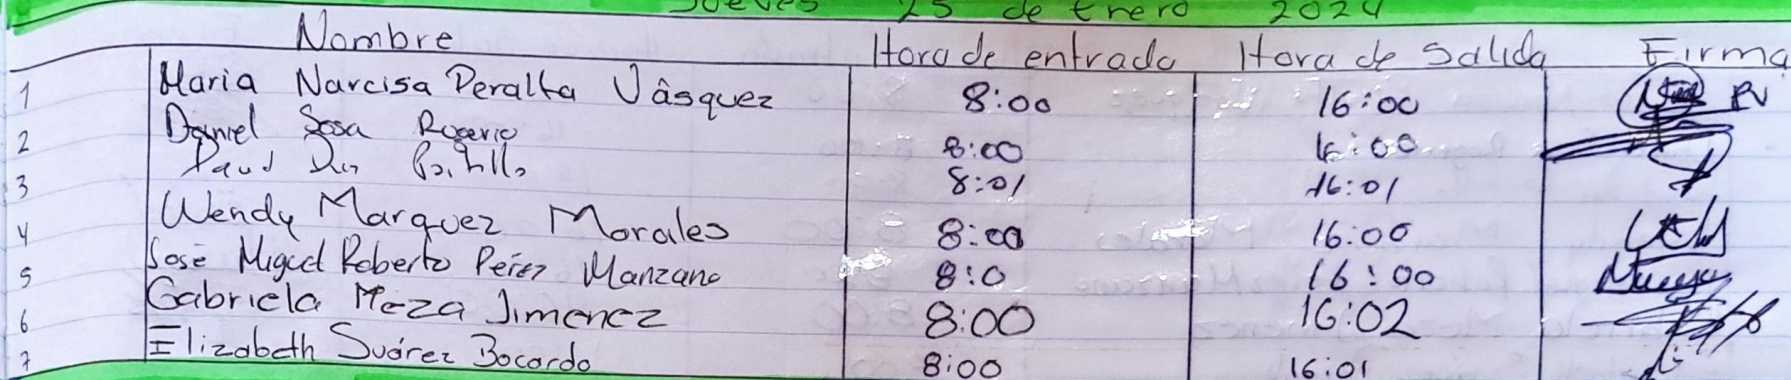 Jueves 25 de Enero 2024
Nombre Hora de entrada Hora de Salida Firma
1 Maria Narcisa Peralta Vâsquez 8:00 16:00
2 Daniel Sosa 8:00 16:00
3 8:01 16:01
4 Wendy Marquez Morales 8:00 16:00
5 José Miguel Roberto Peréz Manzano 8:0 16:00
6 Gabriela Meza Jimenez 8:00 16:02
7 Elizabeth Suárez Bocardo 8:00 16:01